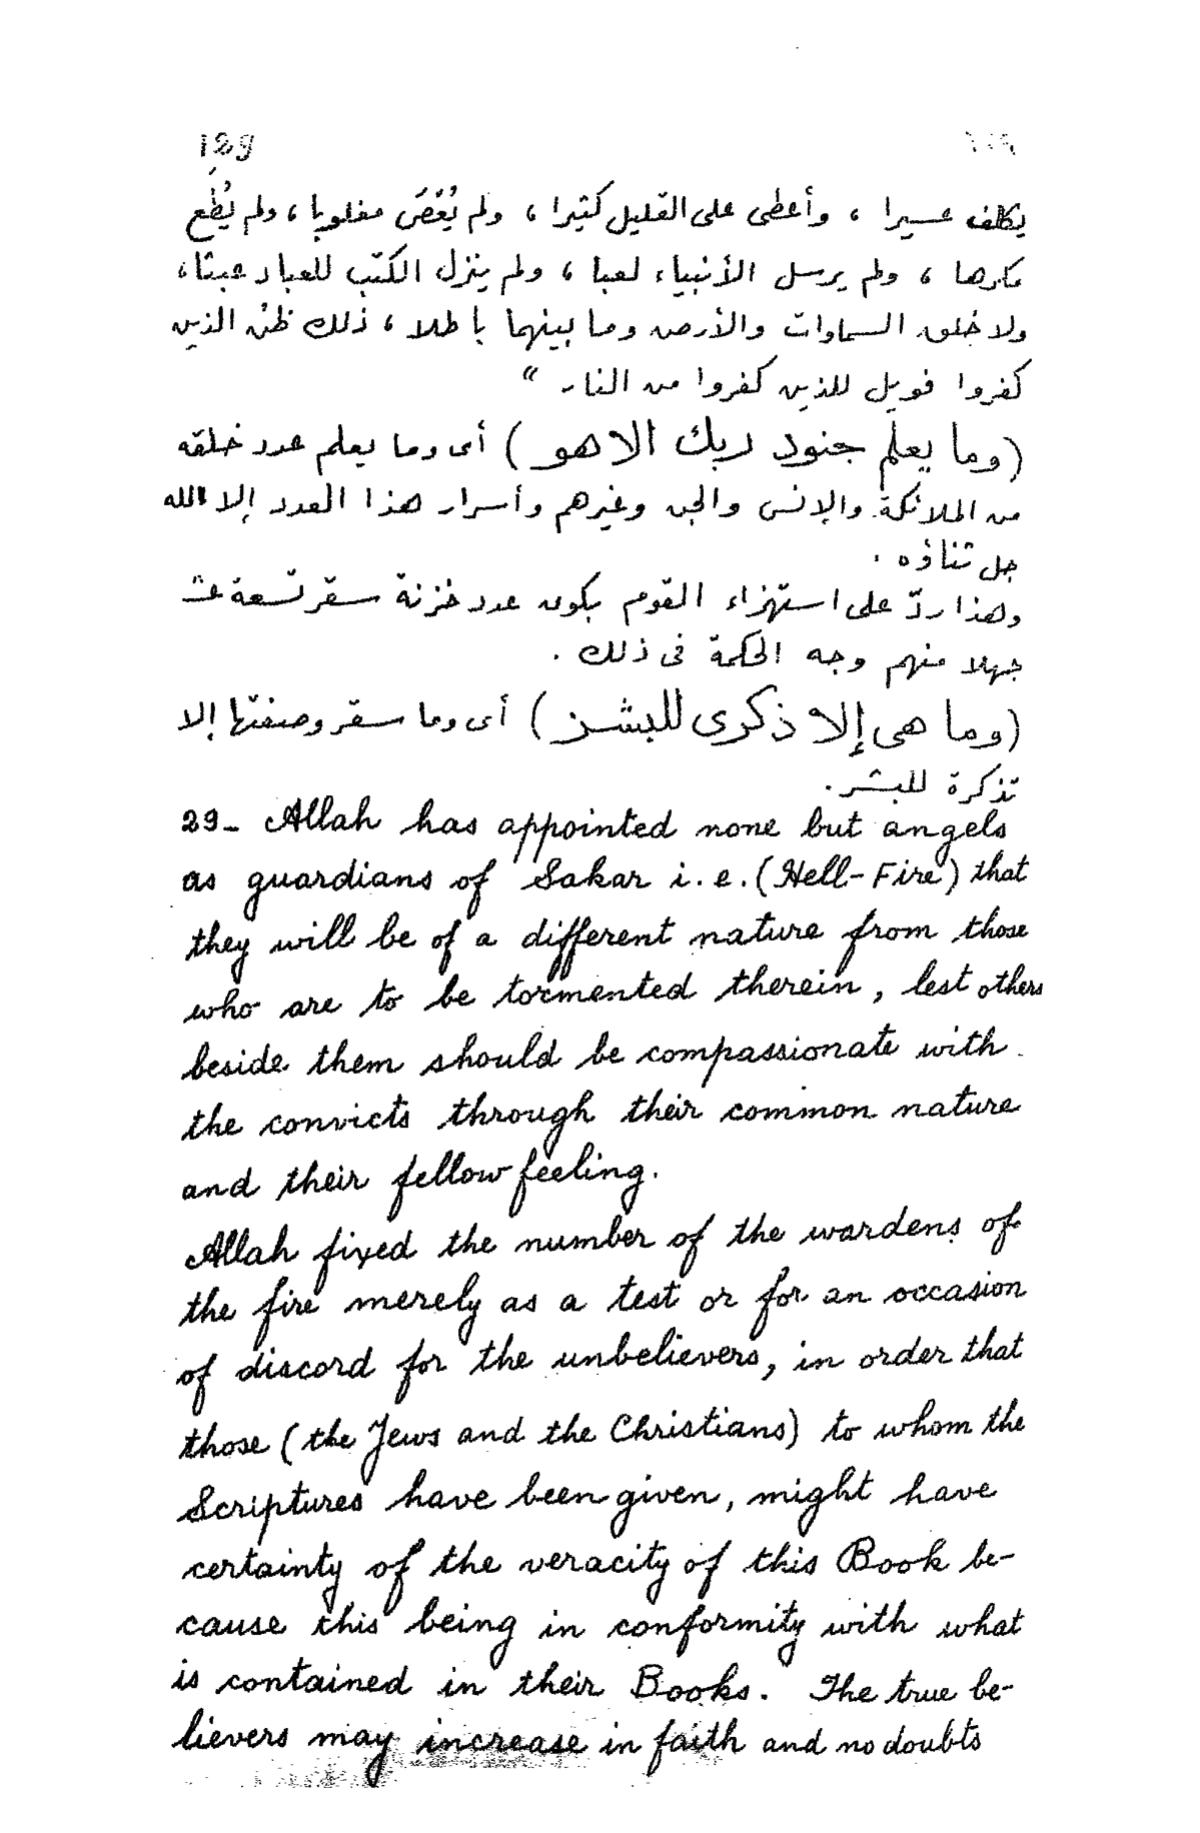 129
يكلف عسيرا ، وأعطى على القليل كثيرا ، ولم يُعْصَ مغلوبا ، ولم يُطَع
مكرها ، ولم يرسل الأنبياء لعبا ، ولم ينزل الكتب للعباد عبثا ،
ولا خلق السماوات والأرض وما بينهما باطلا ، ذلك ظنّ الذين
كفروا فويل للذين كفروا من النار "
(وما يعلم جنود ربك الا هو) أى وما يعلم عدد خلقه
من الملائكة والإنس والجن وغيرهم وأسرار هذا العدد إلا الله
جل ثناؤه .
وهذا ردّ على استهزاء القوم بكون عدد خزنة سقر تسعة عشر
جهلا منهم وجه الحكمة فى ذلك .
(وما هى إلا ذكرى للبشر) أى وما سقر وصفتها إلا
تذكرة للبشر .
29- Allah has appointed none but angels
as guardians of Sakar i.e. (Hell-Fire) that
they will be of a different nature from those
who are to be tormented therein, lest others
beside them should be compassionate with
the convicts through their common nature
and their fellow feeling.
Allah fixed the number of the wardens of
the fire merely as a test or for an occasion
of discord for the unbelievers, in order that
those (the Jews and the Christians) to whom the
Scriptures have been given, might have
certainty of the veracity of this Book be-
cause this being in conformity with what
is contained in their Books. The true be-
lievers may increase in faith and no doubts